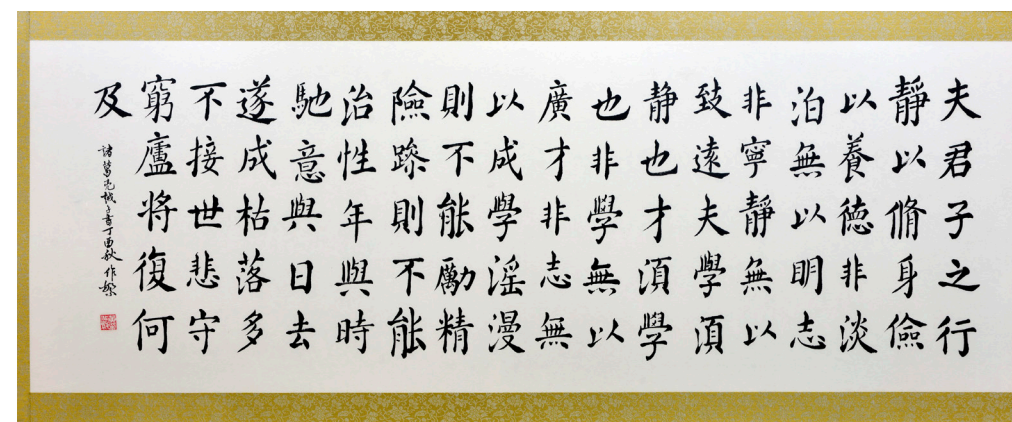 夫君子之行
靜以脩身儉
以養德非淡
泊無以明志
非寧靜無以
致遠夫學須
静也才須學
也非學無以
廣才非志無
以成學滛漫
則不能勵精
險躁則不能
治性年與時
馳意與日去
遂成枯落多
不接世悲守
窮廬將復何
及
諸葛亮誡子書丁酉秋作